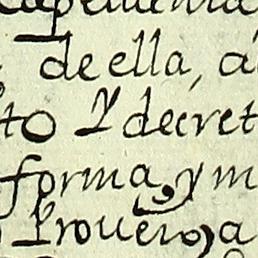 de ella, a
to Y decret
forma, y m
Proueyo, a